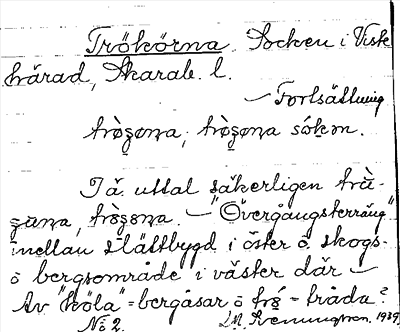 Trökörna Socken i Viste
härad, Skarab. l.
— Fortsättning
trö̀ʒøɳa, trö̀ʒøɳa sókən.
I ä. uttal säkerligen trù-
ʒuɳa, trö̀ʒøɳa. — "Övergångsterräng"
mellan slättbygd i öster o skogs-
o bergsområde i väster där —
Av "köla" = bergåsar o frö = fråda?
No 2. 1939